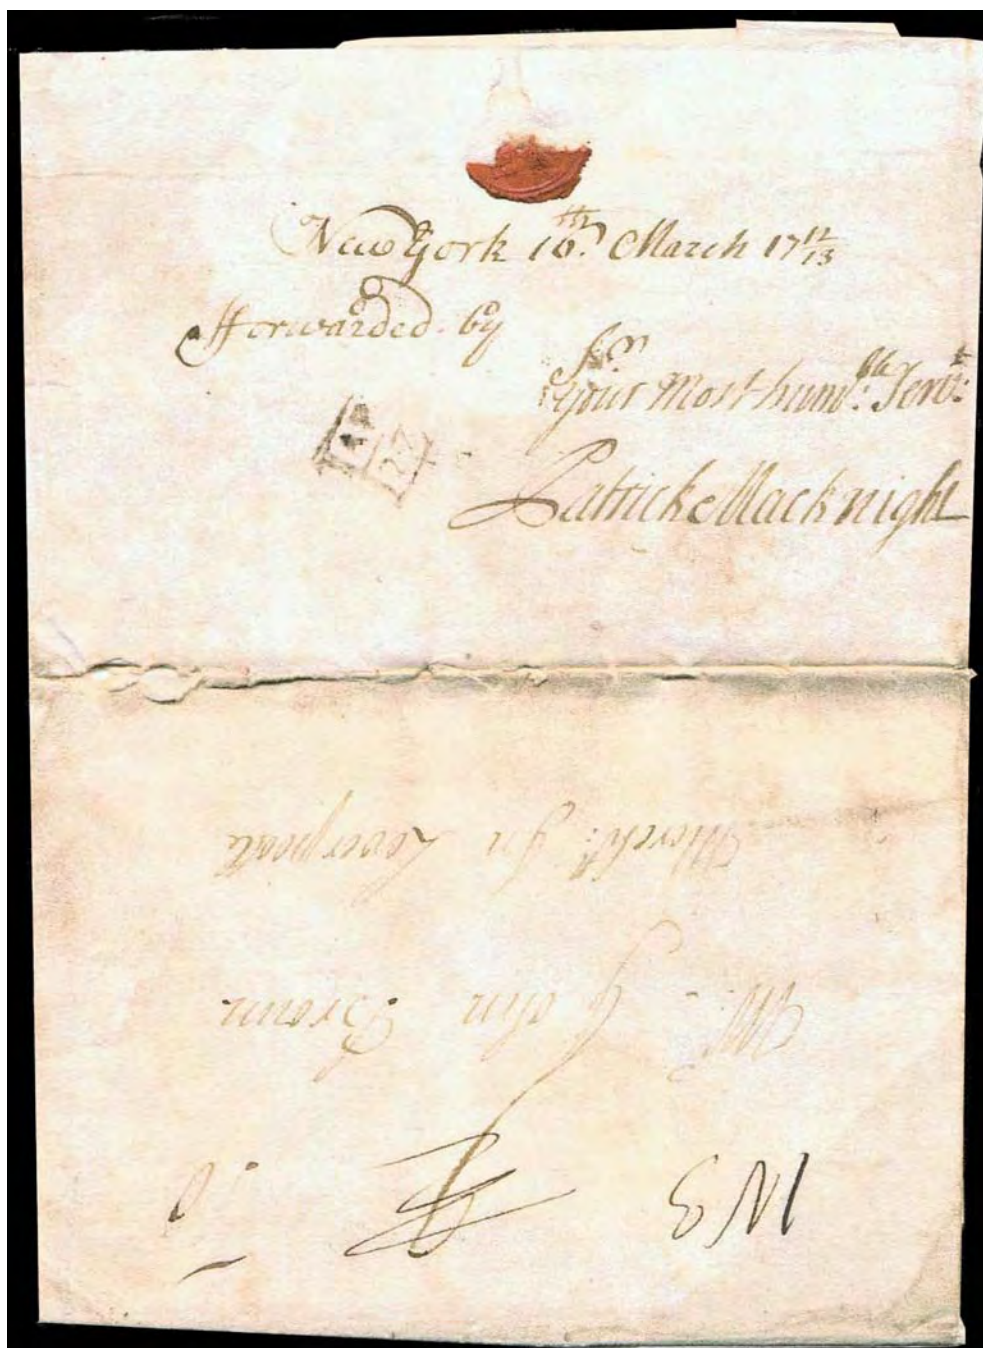 New York 16th. March 17 12/13
fforwarded by
Sr
Your Most humble. Servt:
Patrick Macknight
AP
27
Mr. John Brown
Mercht: In Leverpoole